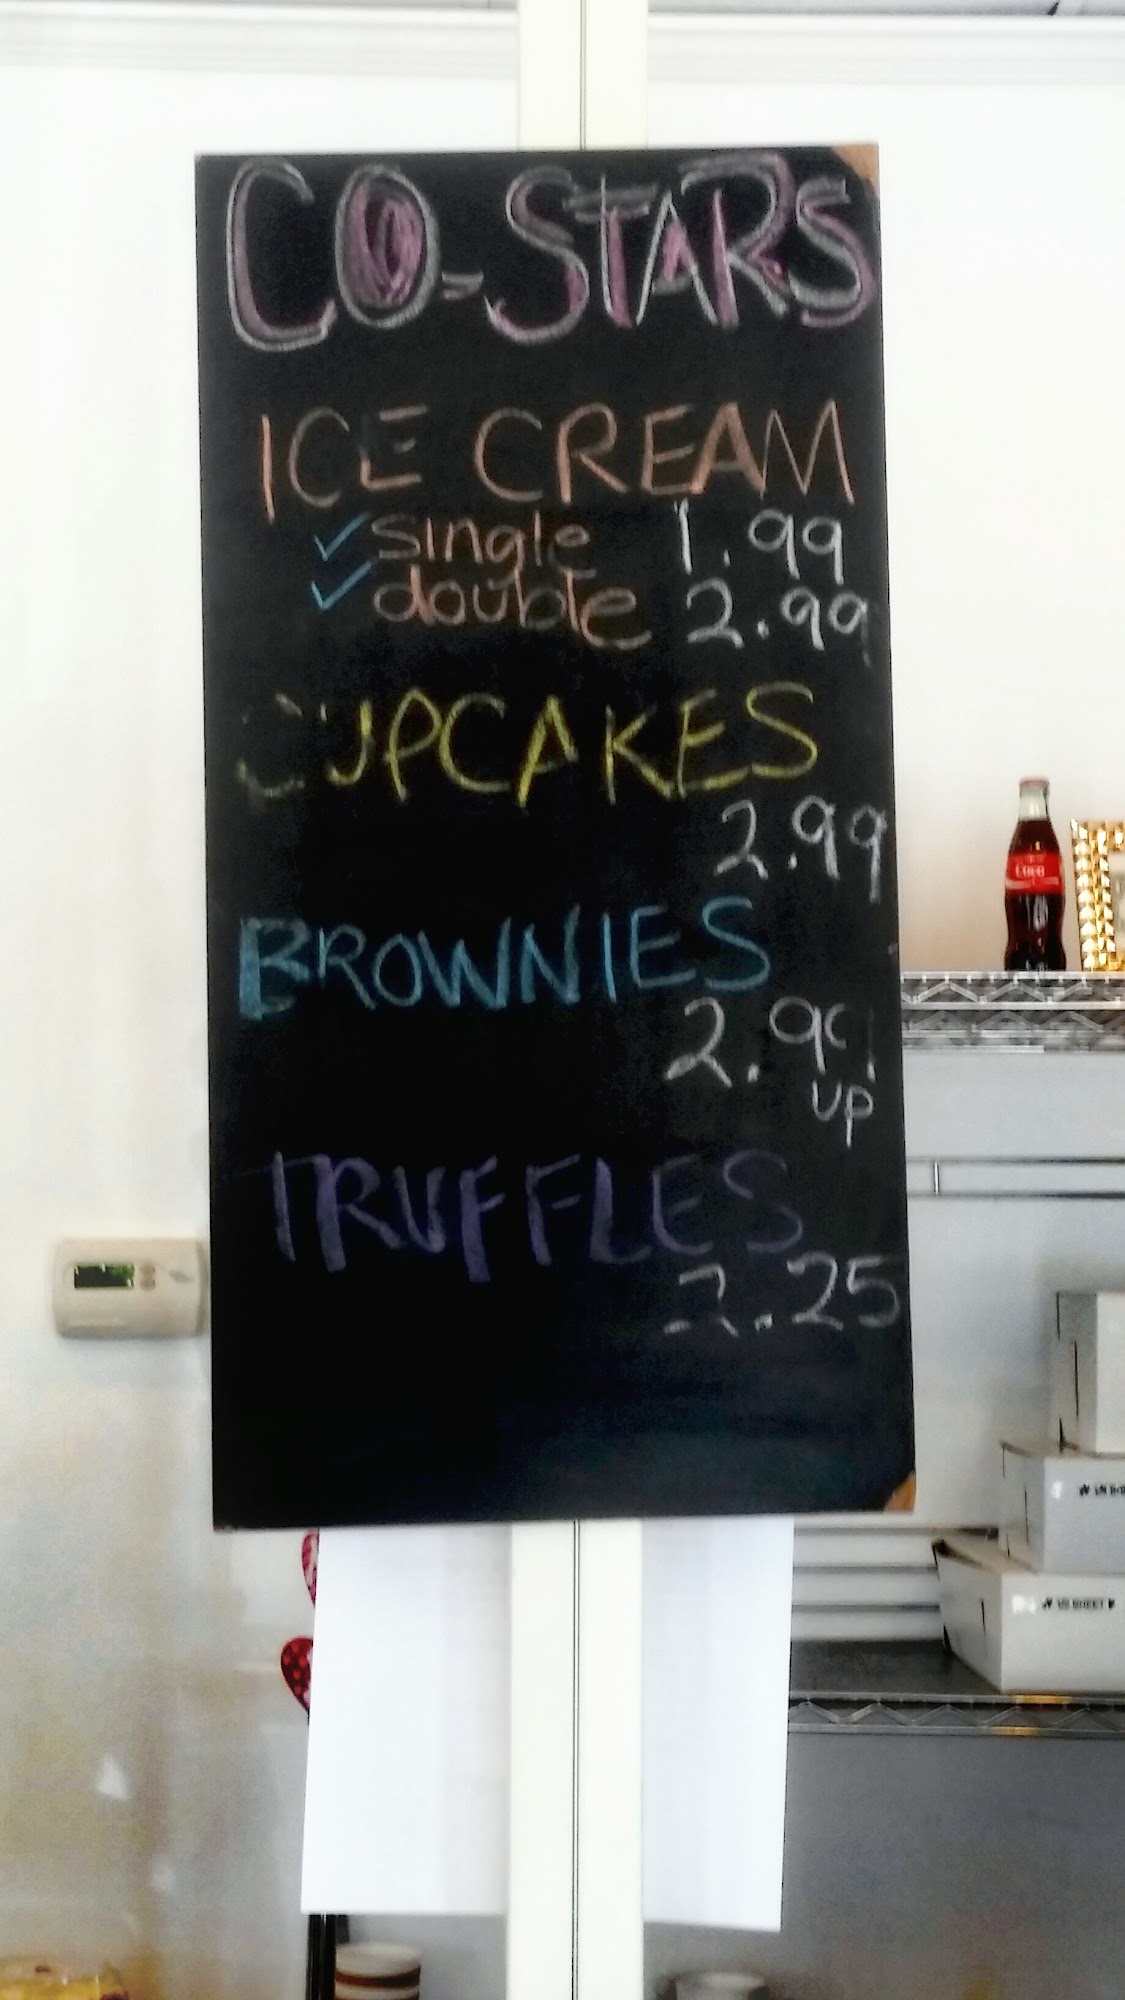 CO-STARS
ICE CREAM
✓ single 1.99
✓ double 2.99
CUPCAKES
2.99
BROWNIES
2.99
UP
TRUFFLES
2.25
Coca